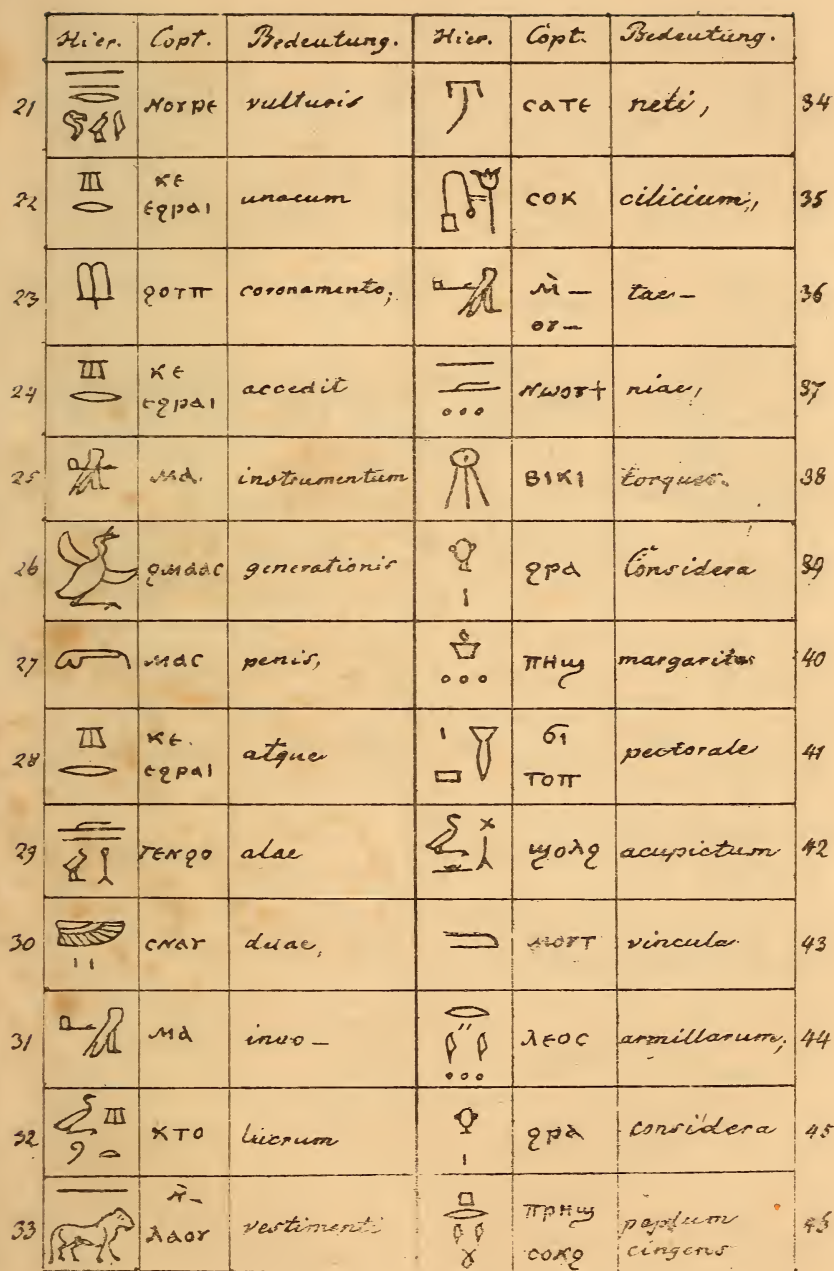 Hier. Copt. Bedeutung. Hier. Copt. Bedeutung.
21 ⲛⲟⲩⲣⲉ vulturis ⲥⲁⲧⲉ neti, 34
22 ⲕⲉ ⲉϩⲣⲁⲓ unacum ⲥⲟⲕ cilicium, 35
23 ϩⲟⲧⲡ coronamento, ⲙ̀— ⲟⲩ— tae— 36
24 ⲕⲉ ⲉϩⲣⲁⲓ accedit ⲛⲱⲟⲩϯ niae, 37
25 ⲙⲁ. instrumentum ⲃⲓⲕⲓ torques. 38
26 ϩⲙⲁⲁⲥ generationis ϩⲣⲁ Considera 39
27 ⲙⲁⲥ penis, ⲡⲏϣ margaritas 40
28 ⲕⲉ. ⲉϩⲣⲁⲓ atque ϭⲓ ⲧⲟⲡ pectorale 41
29 ⲧⲉⲛϩⲟ alae ϣⲟⲗϩ acupictum 42
30 ⲥⲛⲁⲩ duae, ⲙⲟⲩⲧ vincula 43
31 ⲙⲁ invo— ⲗⲉⲟⲥ armillarum, 44
32 ⲕⲧⲟ lucrum ϩⲣⲁ considera 45
33 ⲛ̀— ⲗⲁⲟⲩ vestimenti ⲡⲣⲏϣ ⲥⲟⲕϩ peplum cingens 46